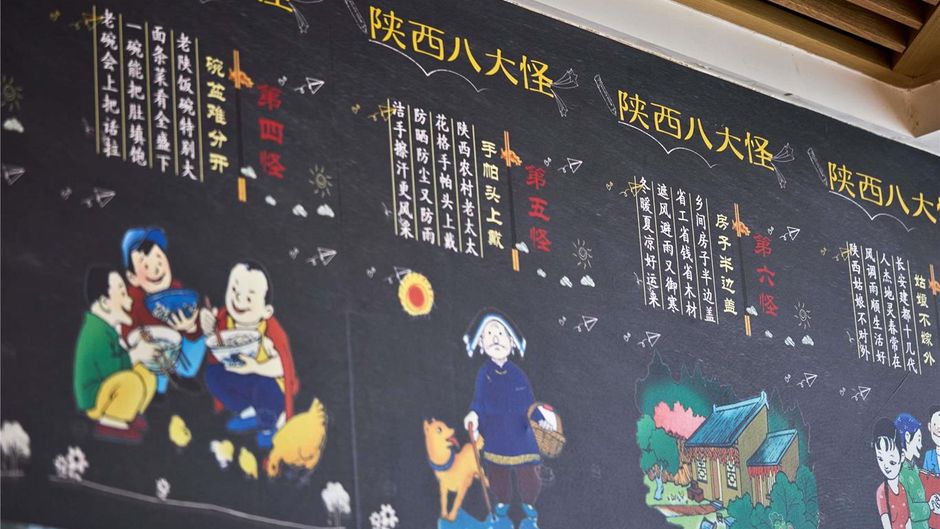 第四怪
碗盆难分开
老陕饭碗特别大
面条菜看全盛下
一碗能把肚填饱
老碗会上把话拉
陕西八大怪
第五怪
手帕头上戴
陕西农村老太太
花格手帕头上戴
防晒防尘又防雨
洁手擦汗更风凉
陕西八大怪
第六怪
房子半边盖
乡间房子半边盖
省工省钱省木材
遮风避雨又御寒
冬暖夏凉好运来
陕西八大怪
姑娘不嫁外
长安建都十几代
人杰地灵春常在
风调雨顺生活好
陕西姑娘不对外